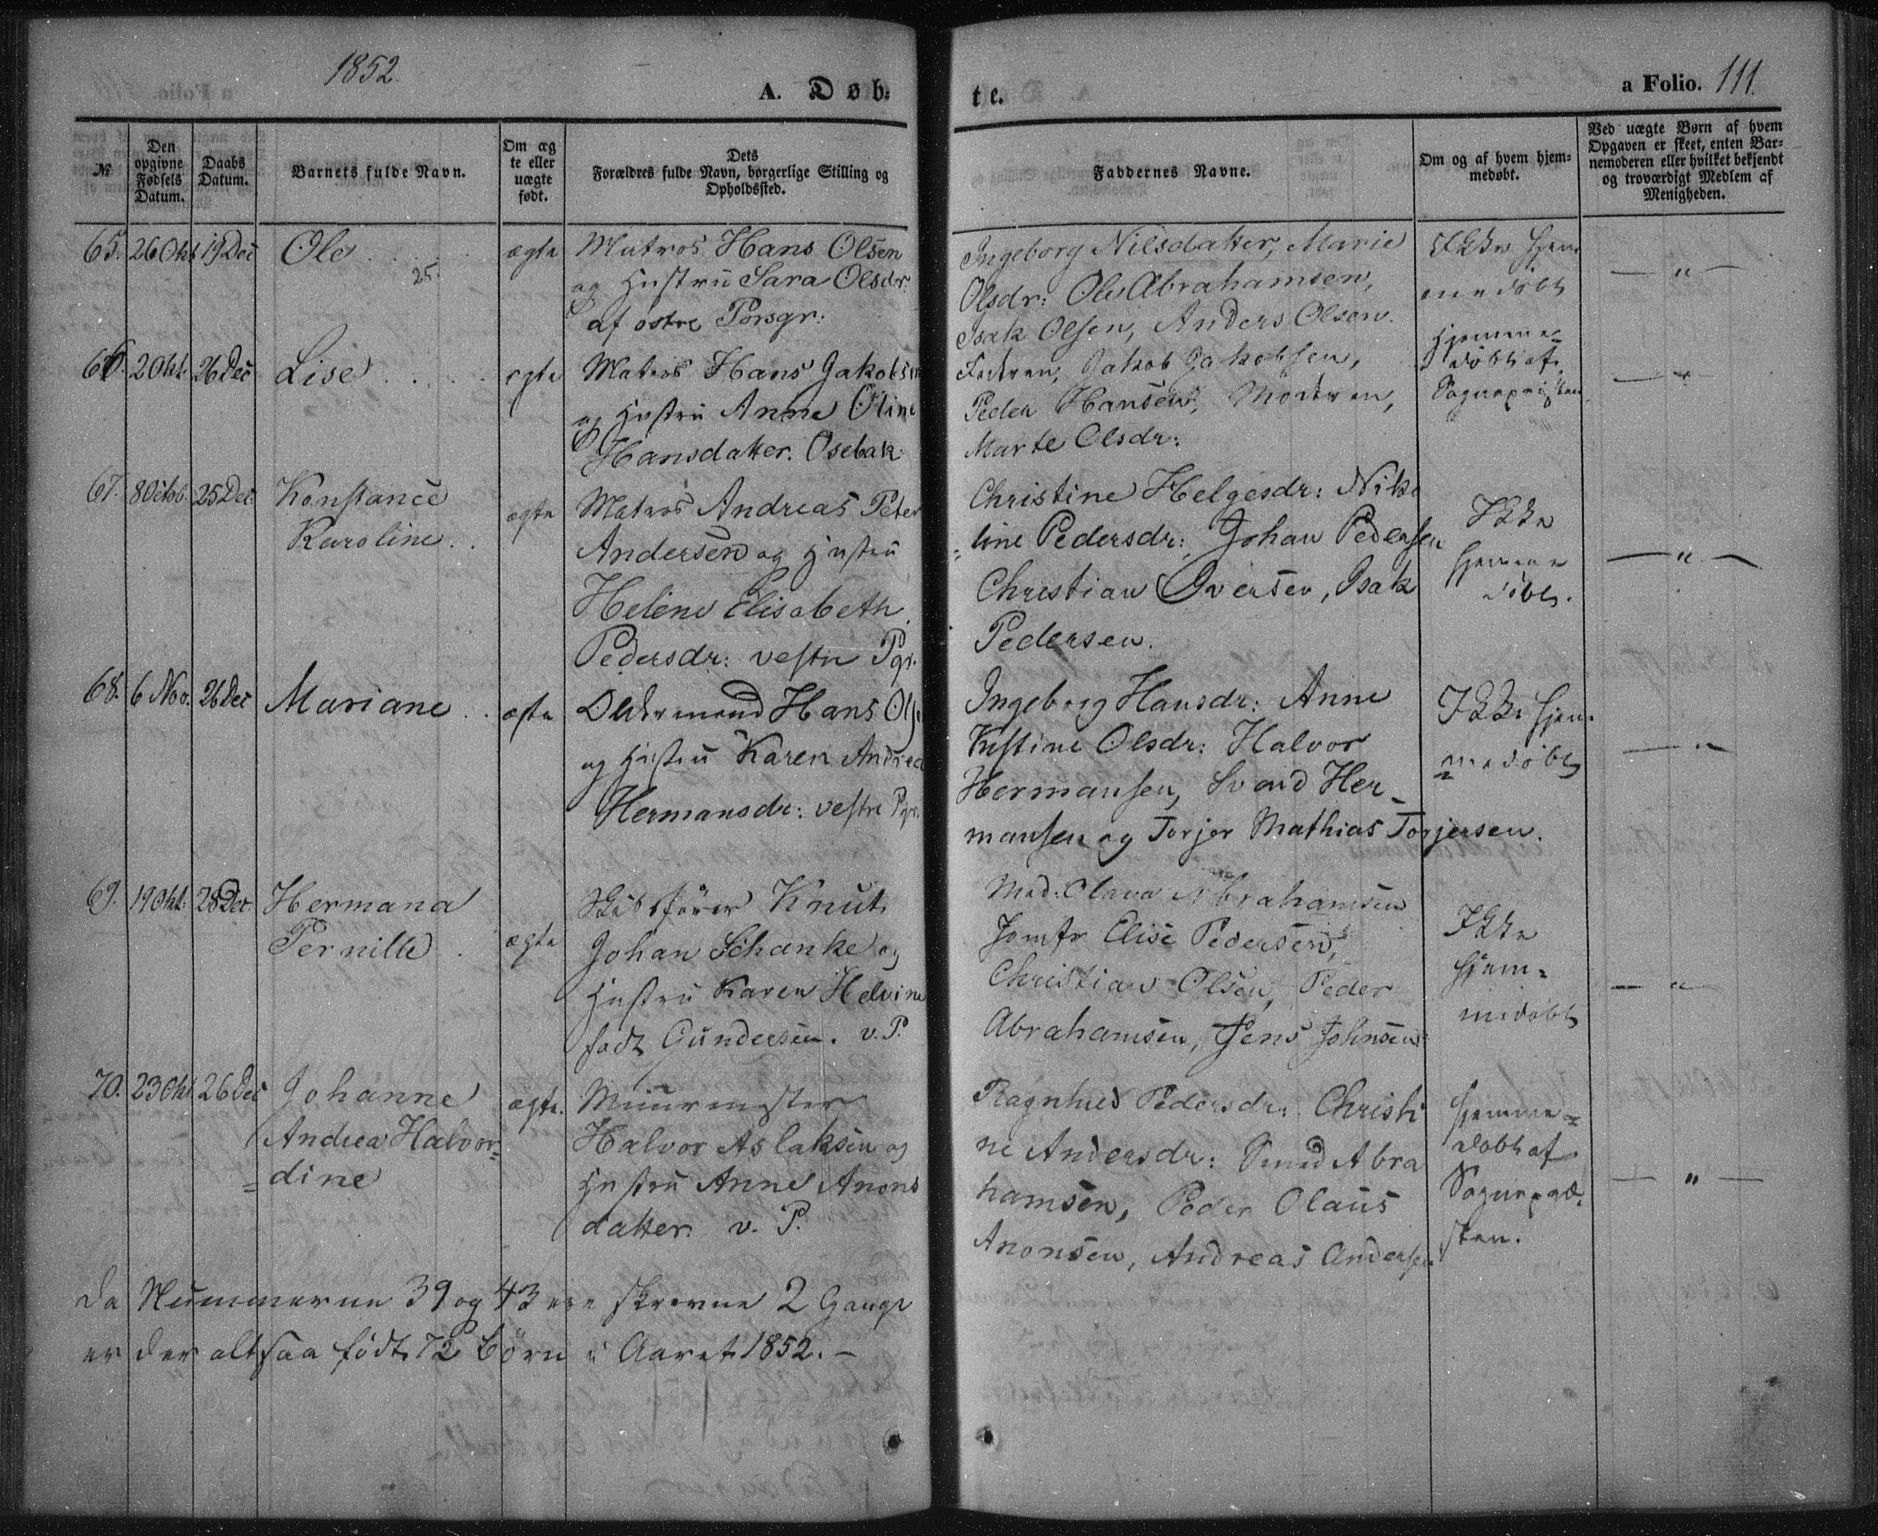 1852
A. Døb-
№
Den opgivne Fødsels Datum.
Daabs Datum.
Barnets fulde Navn.
Om æg te eller uægte født.
Dets Forældres fulde Navn, borgerlige Stilling og Opholdssted.
65. 26 Okt 19 Dec Ole ægte Matros Hans Olsen
25.
og Hustru Sara Olsdr:
af østre Porsgr:
66. 2 Okt. 26 Dec Lise ægte Matros Hans Jakobsen
og Hustru Anne Oline
Hansdatter. Osebak.
67. 8 Octob. 25 Dec. Konstance ægte Matros Andreas Peter
Karoline Andersen og Hustru
Helene Elisabeth
Pedersdr: vestre Pgr.
68. 6 Nov. 26 Dec Mariane ægte Oldermand Hans
og Hustru Karen Andrea
Hermansdr: vestre Pgr.
69. 19 Okt. 28 Dec. Hermana Skibsfører Knut
Pernille ægte Johan Schanke og
Hustru Karen Helvine
født Gundersen. v. P.
70. 23 Okt 26 Dec Johanne ægte. Muurmester
Andrea Halvor- Halvor Aslaksen og
=dine Hustru Anne Anons
datter. v. P.
Da Nummerne 39 og 43 ere skrevne 2 Gange
er der altsaa født 72 Börn i Aaret 1852. –
te.
a Folio. 111.
Faddernes Navne.
Om og af hvem hjem-
medøbt.
Ved uægte Børn af hvem
Opgaven er skeet, enten Bar-
nemoderen eller hvilket bekjendt
og troværdigt Medlem af
Menigheden.
Ingeborg Nilsdatter, Marie Ikke hjem
Olsdr: Ole Abrahamsen, medöbt — " —
Isak Olsen, Anders Olsen.
Faderen, Jakob Jakobsen, Hjemme=
Peder Hansen, Moderen, döbt af — " —
Marte Olsdr: Sognepræsten
Christine Helgesdr: Niko
=line Pedersdr: Johan Pedersen Ikke
Christian Iversen, Isak hjemme — " —
Pedersen. döbt.
Ingeborg Hansdr: Anne Ikke hjem-
Kistine Olsdr: Halvor =medöbt — " —
Hermansen, Svend Her-
mansen og Torjer Mathias Torjersen.
Mad: Olava Abrahamsen
Jomfr Elise Pedersen, Ikke
Christian Olsen, Peder hjem= — " —
Abrahamsen, Jens Johnsen medöbt
Ragnhild Pedersdr: Christi Hjemme=
ne Andersdr: Abra döbt af
hamsen, Peder Olaus Sognepræ- — " —
Anonsen, Andreas Andersen sten.